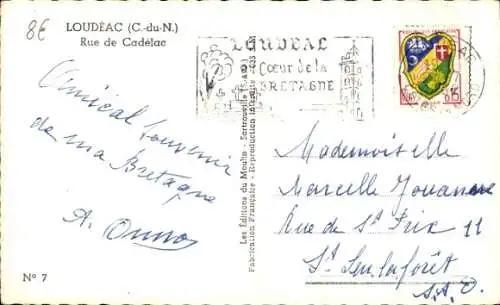 8€
LOUDÉAC (C.-du-N.)
Rue de Cadélac
LOUDEAC
Cœur de la
BRETAGNE
0,15
Amical Souvenir
de ma Bretagne
A. Onno
Les Éditions du Moulin - Sartrouville (S.-&-O.)
Fabrication Française - Reproduction Interdite
Mademoiselle
Marcelle Jouanne
Rue de St Prix 11
St Leu la forêt
S. et O.
N° 7